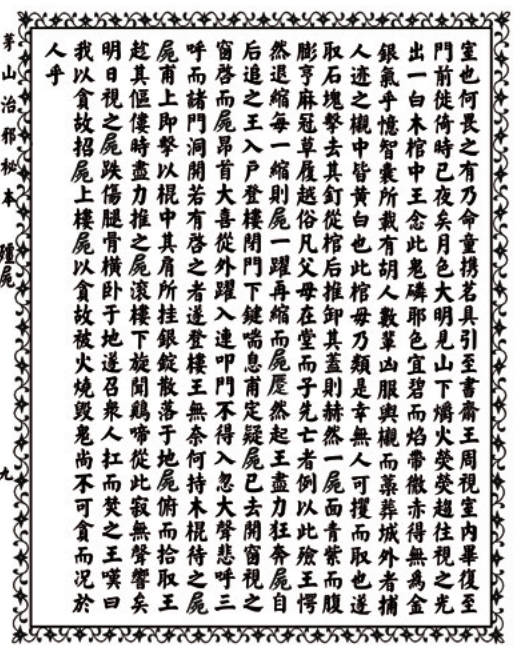 室也何畏之有乃命童携茗具引至書齋王周視室內畢復至
門前徙倚時已夜矣月色大明見山下爝火熒熒趨往視之光
出一白木棺中王念此鬼磷耶色宜碧而焰帶微赤得無為金
銀氣乎憶智囊所載有胡人數輩凶服輿櫬而藁葬城外者捕
人迹之櫬中皆黃白也此棺毋乃類是幸無人可攫而取也遂
取石塊擊去其釘從棺后推卸其蓋則赫然一屍面青紫而腹
膨亨麻冠草履越俗凡父母在堂而子先亡者例以此殮王愕
然退縮每一縮則屍一躍再縮而屍屢然起王盡力狂奔屍自
后追之王入户登樓閉門下鍵喘息甫定疑屍已去開窗視之
窗啓而屍昂首大喜從外躍入連叩門不得入忽大聲悲呼三
呼而諸門洞開若有啓之者遂登樓王無奈何持木棍待之屍
屍甫上即擊以棍中其肩所挂銀錠散落于地屍俯而拾取王
趁其傴僂時盡力推之屍滾樓下旋聞鷄啼從此寂無聲響矣
明日視之屍跌傷腿骨橫卧于地遂召衆人扛而焚之王嘆曰
我以貪故招屍上樓屍以貪故被火燒毀鬼尚不可貪而況於
人乎
茅山治邪秘本 殭屍 九